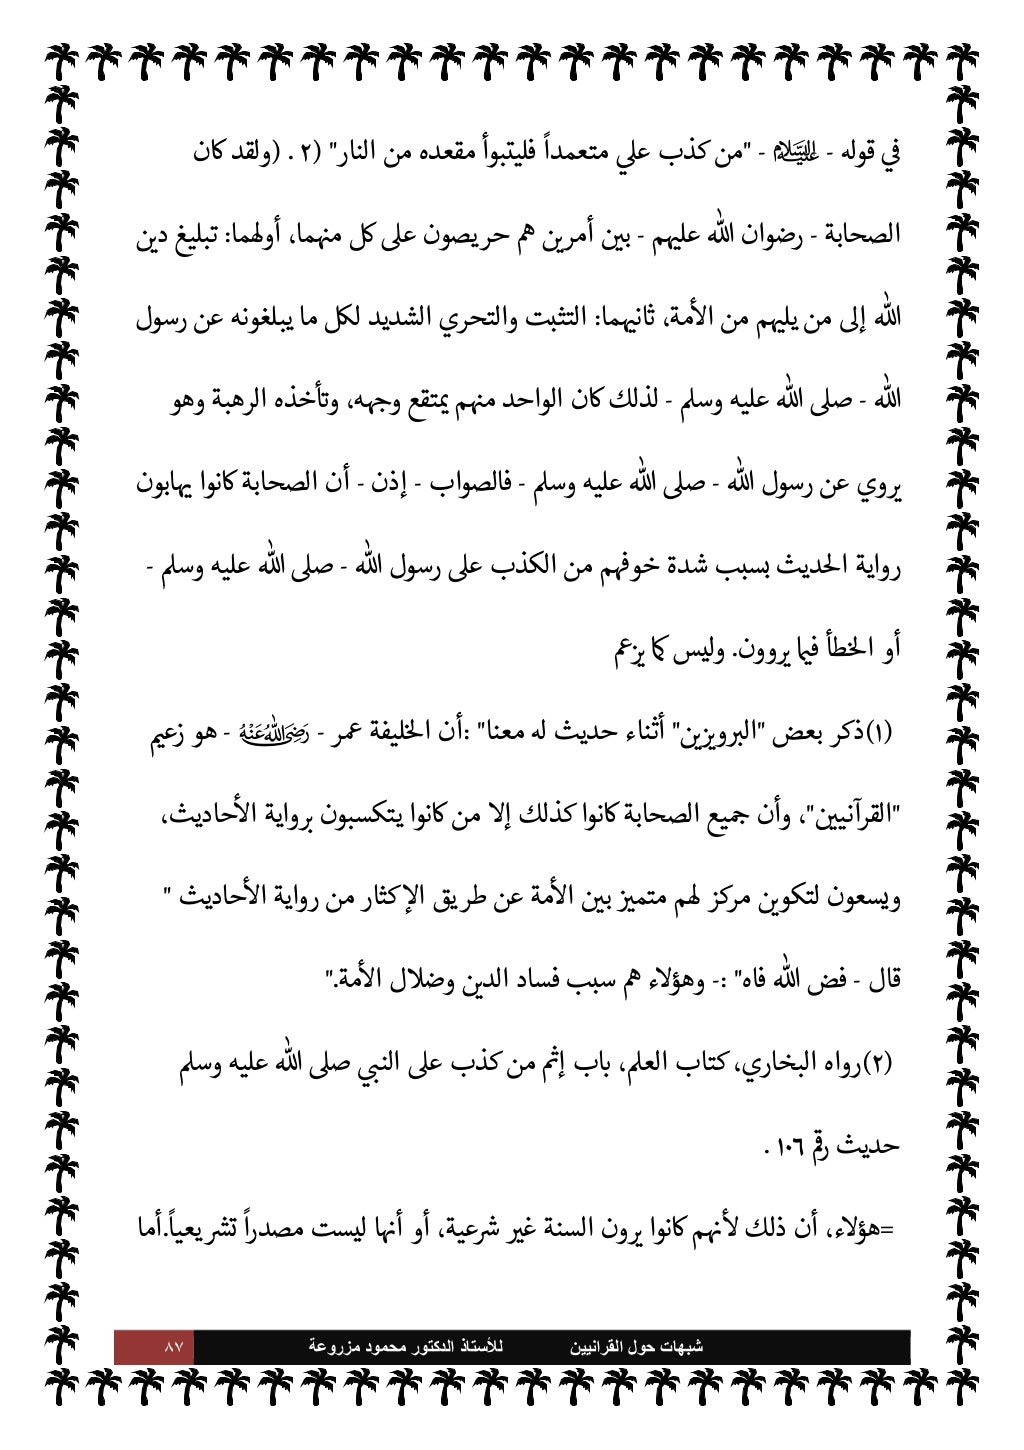 في قوله - عليه السلام - "من كذب علي متعمداً فليتبوأ مقعده من النار" (٢ . (ولقد كان
الصحابة - رضوان الله عليهم - بين أمرين هم حريصون على كل منهما، أولهما: تبليغ دين
الله إلى من يليهم من الأمة، ثانيهما: التثبت والتحري الشديد لكل ما يبلغونه عن رسول
الله - صلى الله عليه وسلم - لذلك كان الواحد منهم يمتقع وجهه، وتأخذه الرهبة وهو
يروي عن رسول الله - صلى الله عليه وسلم - فالصواب - إذن - أن الصحابة كانوا يهابون
رواية الحديث بسبب شدة خوفهم من الكذب على رسول الله - صلى الله عليه وسلم -
أو الخطأ فيما يروون. وليس كما يزعم
(١)ذكر بعض "البرويزين" أثناء حديث له معنا" :أن الخليفة عمر - رَضِيَ اللَّهُ عَنْهُ - هو زعيم
"القرآنيين"، وأن جميع الصحابة كانوا كذلك إلا من كانوا يتكسبون برواية الأحاديث،
ويسعون لتكوين مركز لهم متميز بين الأمة عن طريق الإكثار من رواية الأحاديث "
قال - فض الله فاه" :- وهؤلاء هم سبب فساد الدين وضلال الأمة."
(٢)رواه البخاري، كتاب العلم، باب إثم من كذب على النبي صلى الله عليه وسلم
حديث رقم ١٠٦ .
=هؤلاء، أن ذلك لأنهم كانوا يرون السنة غير شرعية، أو أنها ليست مصدراً تشريعياً.أما
شبهات حول القرانيين للأستاذ الدكتور محمود مزروعة ٨٧